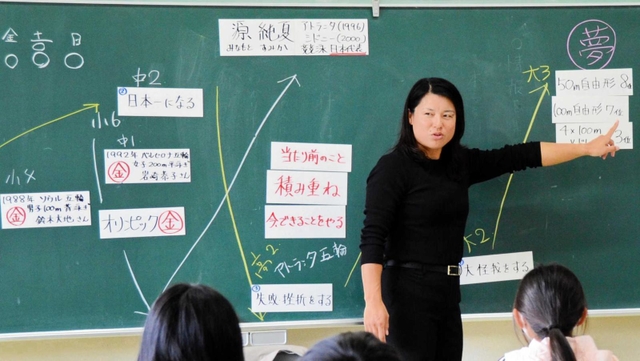 金 土 日
源 純夏
みなもと すみか
アトランタ(1996)
シドニー(2000)
競泳 日本代表
夢
中2
日本一になる
小6
中1
1992年 バルセロナ五輪
女子200m平泳ぎ
金 岩崎恭子さん
小4
1988年 ソウル五輪
金 男子100m背泳ぎ
鈴木大地さん
オリンピック金
当たり前のこと
積み重ね
今、できることをやる
高2
アトランタ五輪
失敗 挫折をする
大3
50m自由形 8位
100m自由形 7位
4×100m
3位
大2
大怪我をする